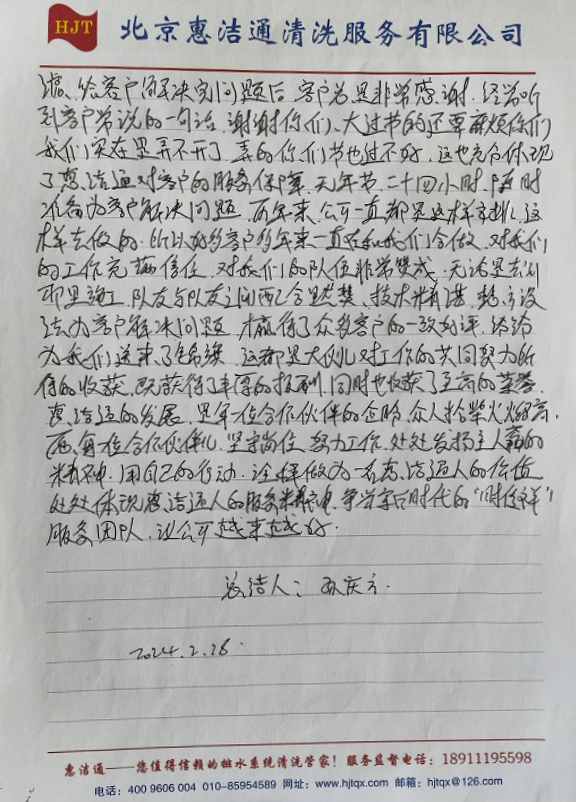 HJT 北京惠洁通清洗服务有限公司
给客户解决完问题后,客户总是非常感谢,经常听
到客户常说的一句话,谢谢你们,大过节的还要麻烦你们
我们实在是弄不开了,弄的你们节也过不好,这也充分体现
了惠洁通对客户的服务保障,无年节,二十四小时,随时
准备为客户解决问题,两年来,公司一直都是这样,这
样去做的,所以好多客户多年来一直在和我们合做,对我们
的工作充满信任,对我们的队伍非常赞成,无论是去到
那里施工,队友与队友之间配合默契,技术精湛,想方设
法为客户解决问题,才赢得了众多客户的一致好评,
为我们送来了锦旗,这都是大伙儿对工作的共同努力所
得的收获,既获得了丰厚的报酬,同时也收获了至高的荣誉,
惠洁通的发展,是每一位合作伙伴的企盼,众人拾柴火焰高,
而每一位合作伙伴,坚守岗位,努力工作,处处发扬主人翁的
精神,用自己的行动,诠释做为一名惠洁通人的价值
处处体现惠洁通人的服务精神,争当新时代的"时传祥"
服务团队,让公司越来越好.
总结人: 孙庆
2024.2.28.
惠洁通——您值得信赖的排水系统清洗管家! 服务监督电话:18911195598
电话:400 9606 004 010-85954589 网址:www.hjtqx.com 邮箱:hjtqx@126.com